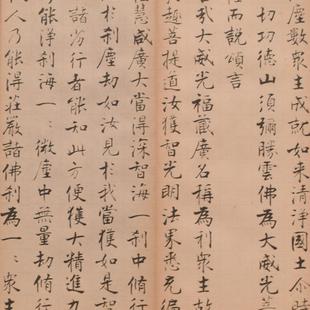 塵數眾生成就如來清淨國土尒時
切功德山須彌勝雲佛為大威光菩
而說頌言
哉大威光福藏廣名稱為利眾生故
趣菩提道汝獲智光明法界悉充徧
慧咸廣大當得深智海一剎中脩行
於剎塵劫如汝見於我當獲如是智
諸劣行者能知此方便獲大精進力
能淨剎海一一微塵中無量劫脩行
人乃能得莊嚴諸佛剎為一一眾生